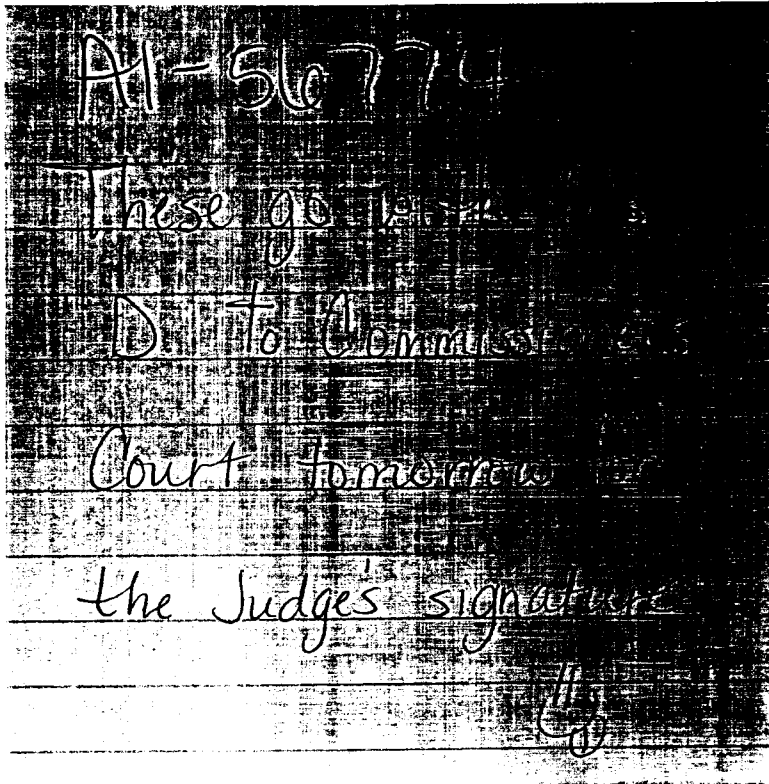 A1-56774
These go with
D. to Commissioners
Court tomorrow for
the Judge's signature